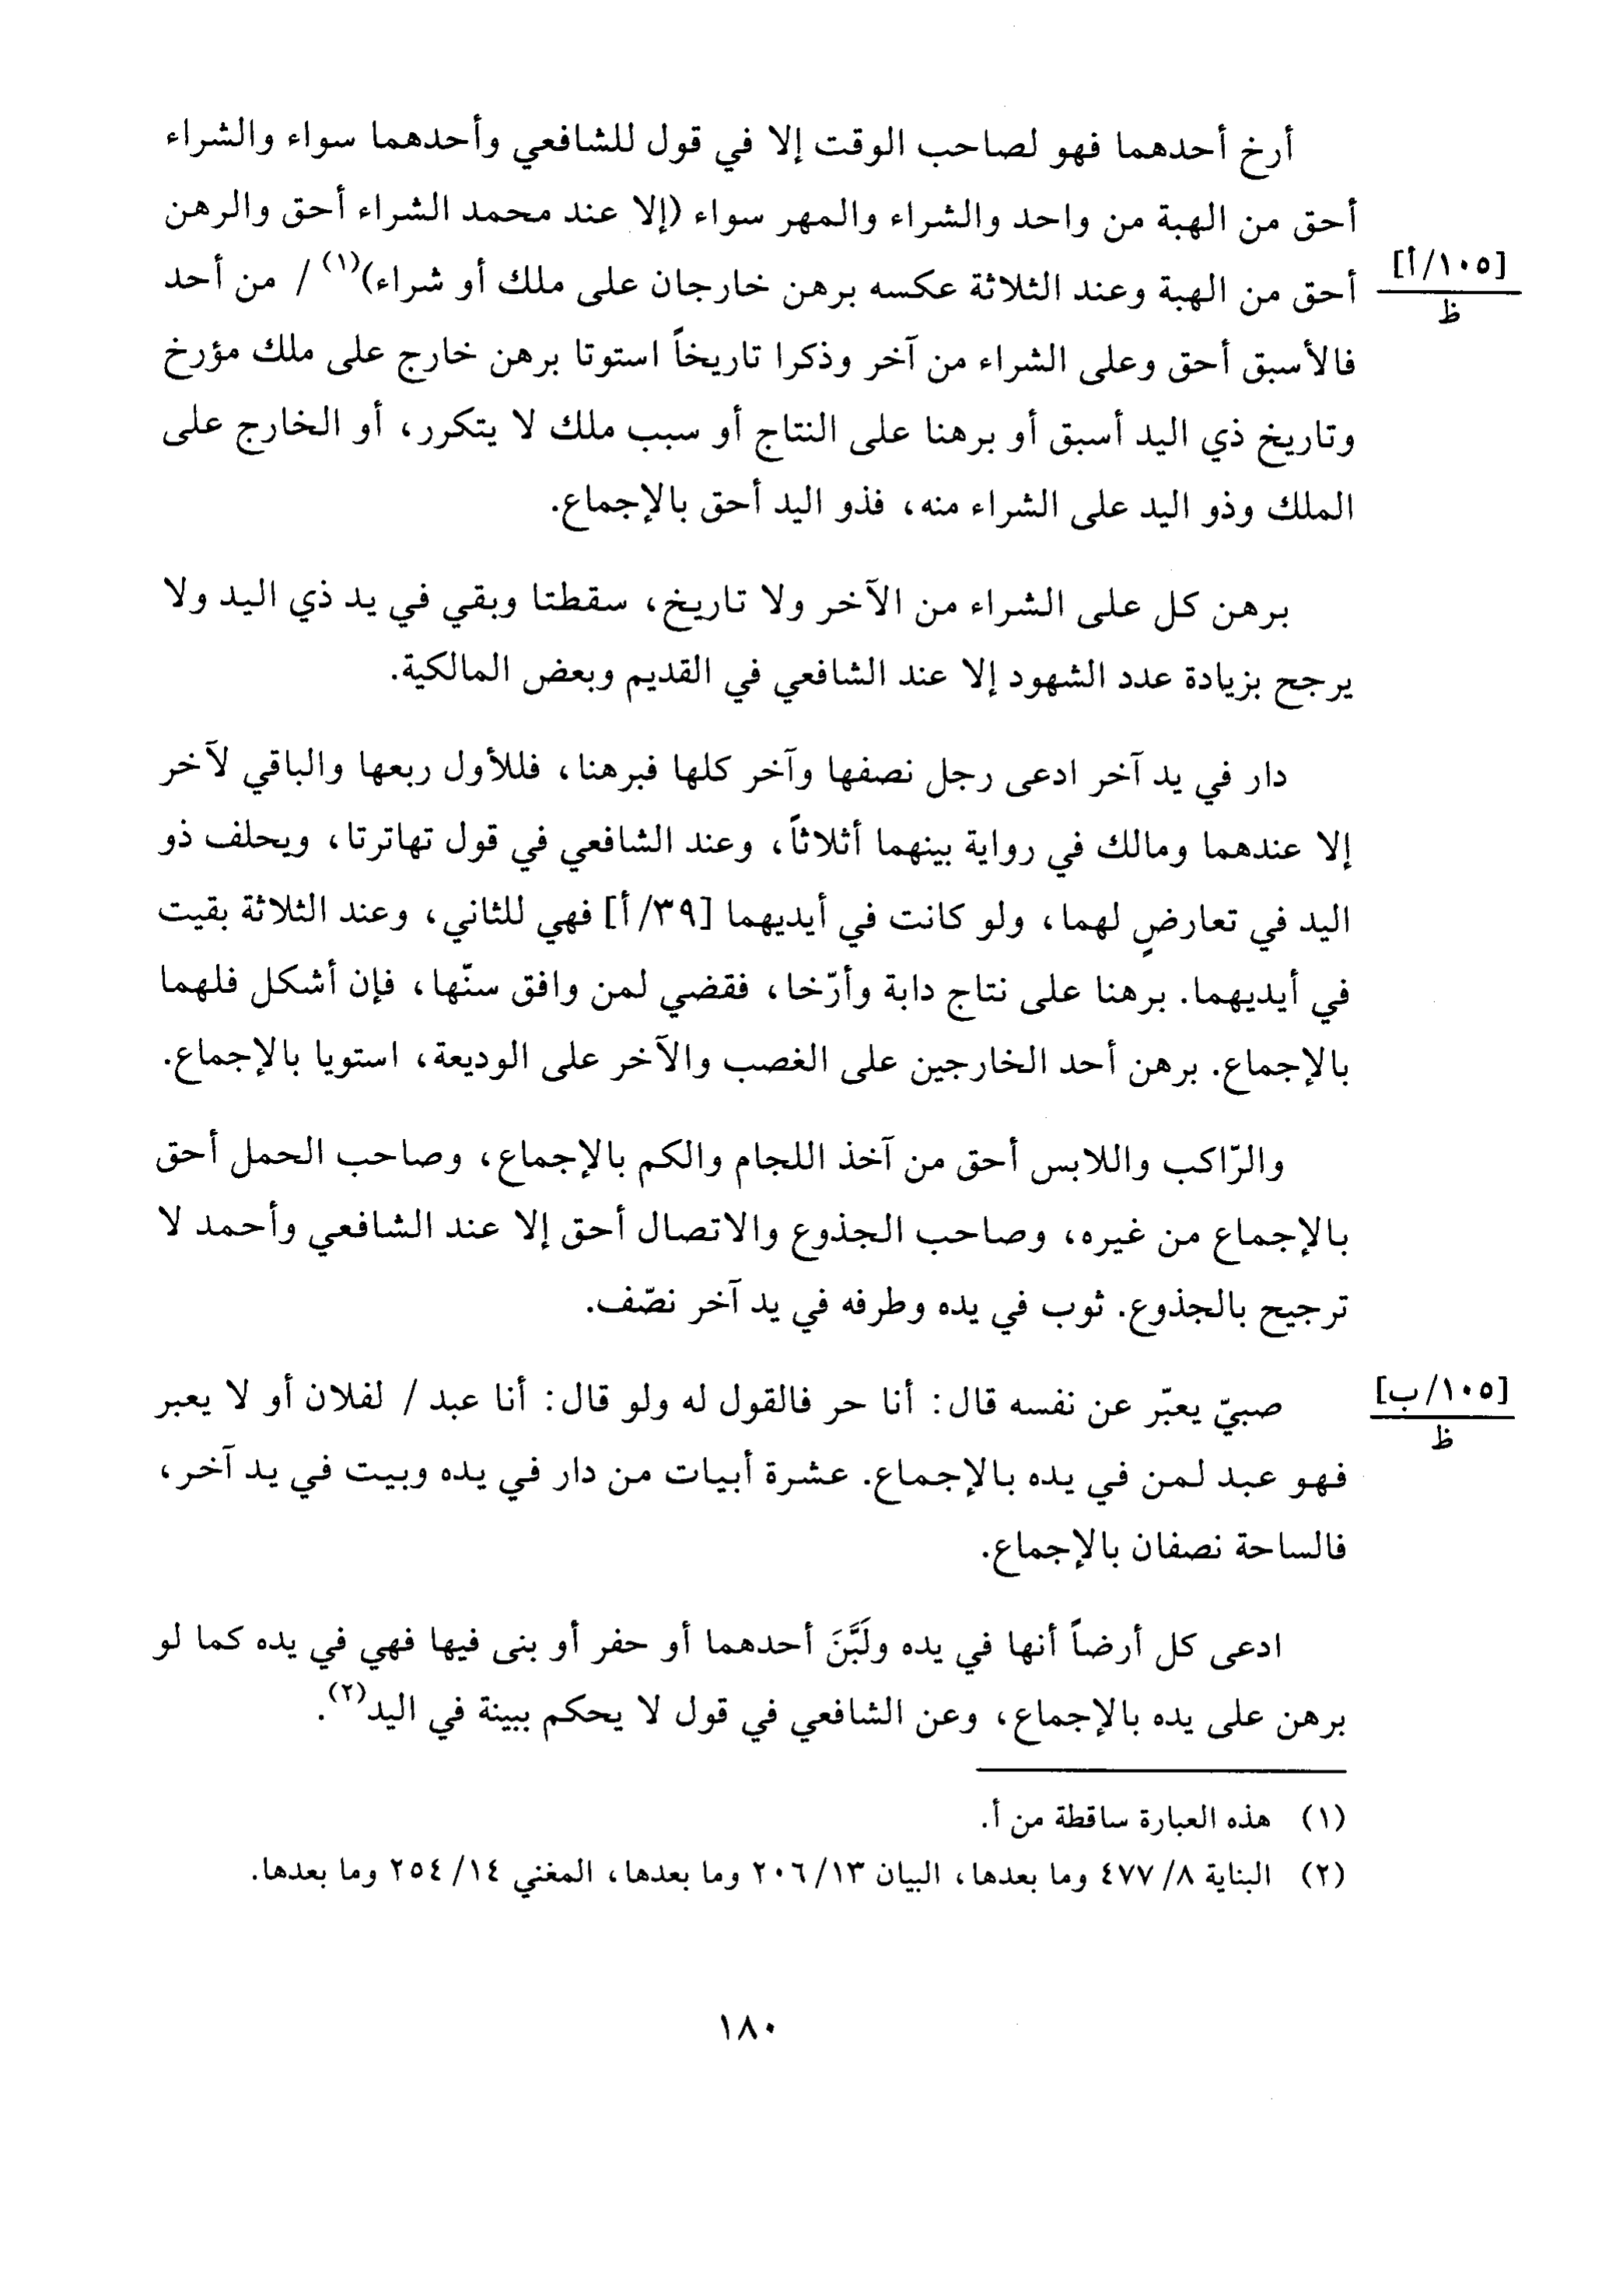 أرخ أحدهما فهو لصاحب الوقت إلا في قول للشافعي وأحدهما سواء والشراء
أحق من الهبة من واحد والشراء والمهر سواء (إلا عند محمد الشراء أحق والرهن
[١٠٥/أ]
ظ
أحق من الهبة وعند الثلاثة عكسه برهن خارجان على ملك أو شراء)(١) / من أحد
فالأسبق أحق وعلى الشراء من آخر وذكرا تاريخاً استوتا برهن خارج على ملك مؤرخ
وتاريخ ذي اليد أسبق أو برهنا على النتاج أو سبب ملك لا يتكرر، أو الخارج على
الملك وذو اليد على الشراء منه، فذو اليد أحق بالإجماع.
برهن كل على الشراء من الآخر ولا تاريخ، سقطتا وبقي في يد ذي اليد ولا
يرجح بزيادة عدد الشهود إلا عند الشافعي في القديم وبعض المالكية.
دار في يد آخر ادعى رجل نصفها وآخر كلها فبرهنا، فللأول ربعها والباقي لآخر
إلا عندهما ومالك في رواية بينهما أثلاثاً، وعند الشافعي في قول تهاترتا، ويحلف ذو
اليد في تعارضٍ لهما، ولو كانت في أيديهما [٣٩/أ] فهي للثاني، وعند الثلاثة بقيت
في أيديهما. برهنا على نتاج دابة وأرّخا، فقضي لمن وافق سنّها، فإن أشكل فلهما
بالإجماع. برهن أحد الخارجين على الغصب والآخر على الوديعة، استويا بالإجماع.
والرّاكب واللابس أحق من آخذ اللجام والكم بالإجماع، وصاحب الحمل أحق
بالإجماع من غيره، وصاحب الجذوع والاتصال أحق إلا عند الشافعي وأحمد لا
ترجيح بالجذوع. ثوب في يده وطرفه في يد آخر نصّف.
[١٠٥/ب]
ظ
صبيّ يعبّر عن نفسه قال: أنا حر فالقول له ولو قال: أنا عبد / لفلان أو لا يعبر
فهو عبد لمن في يده بالإجماع. عشرة أبيات من دار في يده وبيت في يد آخر،
فالساحة نصفان بالإجماع.
ادعى كل أرضاً أنها في يده ولَبَّنَ أحدهما أو حفر أو بنى فيها فهي في يده كما لو
برهن على يده بالإجماع، وعن الشافعي في قول لا يحكم ببينة في اليد(٢).
(١) هذه العبارة ساقطة من أ.
(٢) البناية ٨/ ٤٧٧ وما بعدها، البيان ١٣/ ٢٠٦ وما بعدها، المغني ١٤/ ٢٥٤ وما بعدها.
١٨٠